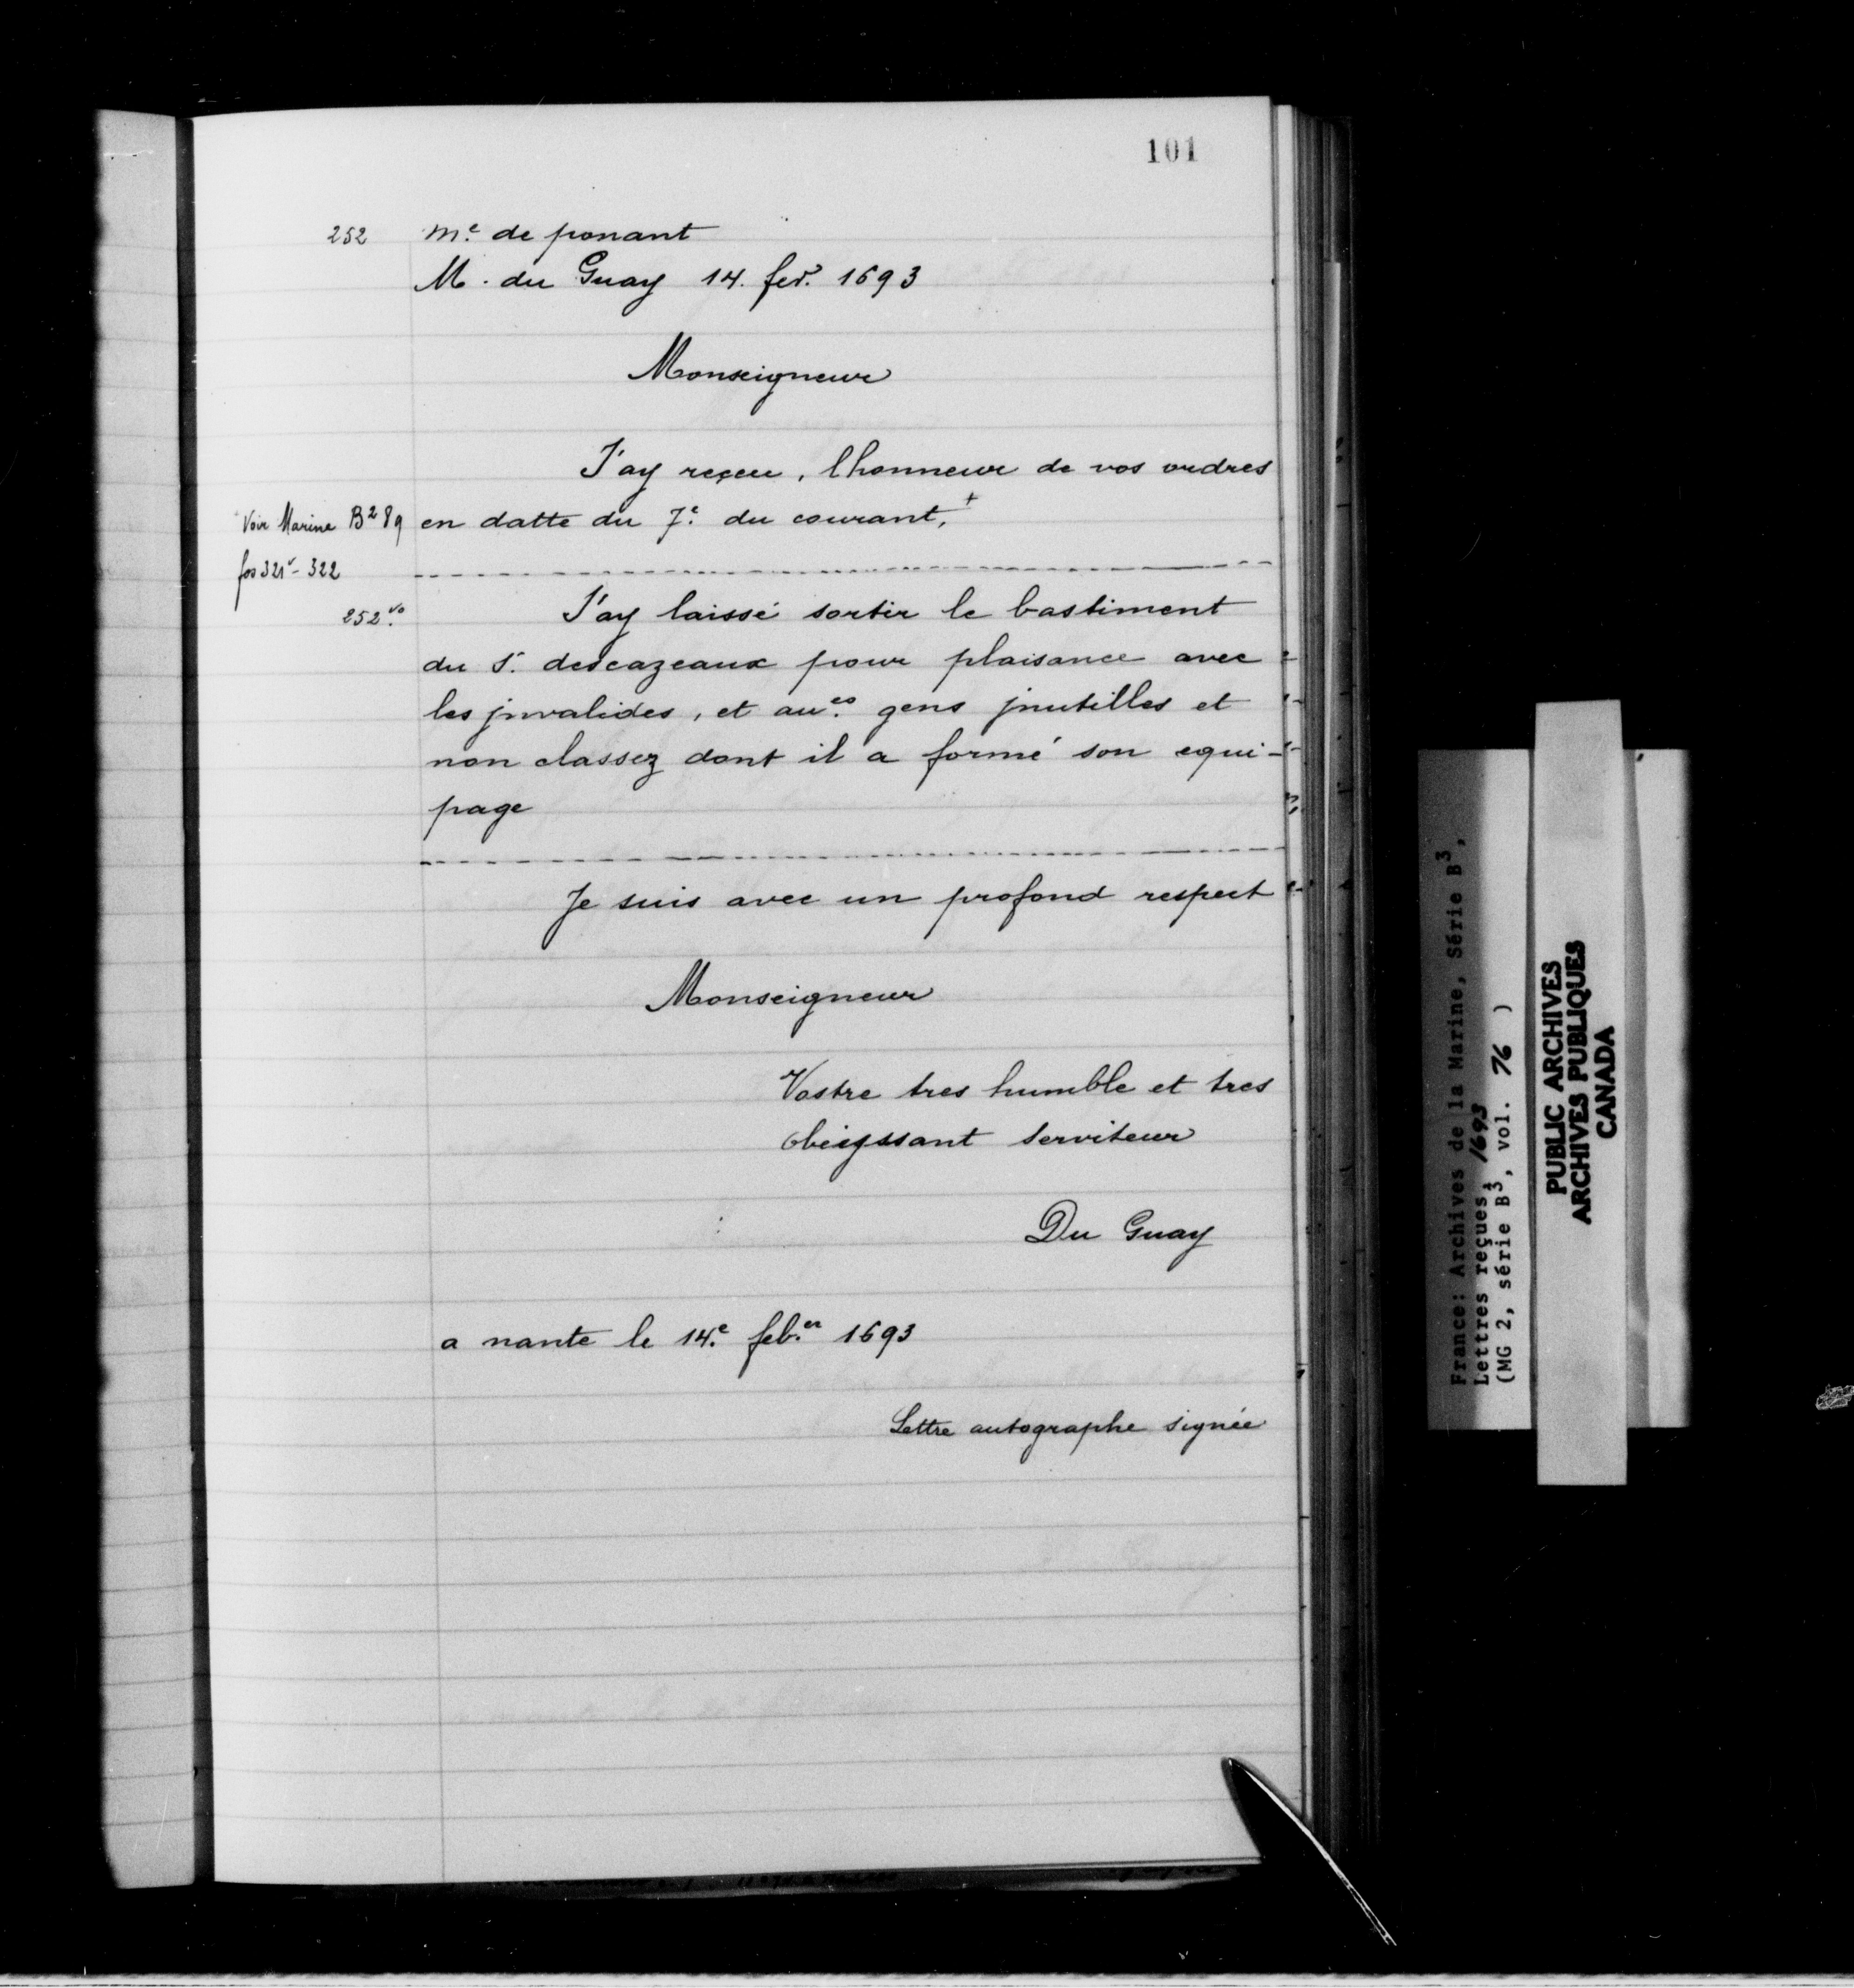 101
252 m.e de ponant
M. du Guay 14. fev.r 1693
Monseigneur
J'ay reçeu, lhonneur de vos ordres
Voir Marine B2 89 en datte du 7.e du courant,+
fos 321v - 322
252.vo J'ay laissé sortir le bastiment
du S.r descazeaux pour plaisance avec
les jnvalides, et au.es gens jnutilles et
non classez dont il a formé son equi-
page
Je suis avec un profond respect
Monseigneur
Vostre tres humble et tres
obeigssant serviteur
Du Guay
a nante le 14.e feb.er 1693
Lettre autographe signée
France: Archives de la Marine, Série B3,
Lettres reçues, 1693
(MG 2, série B3, vol. 76 )
PUBLIC ARCHIVES
ARCHIVES PUBLIQUES
CANADA